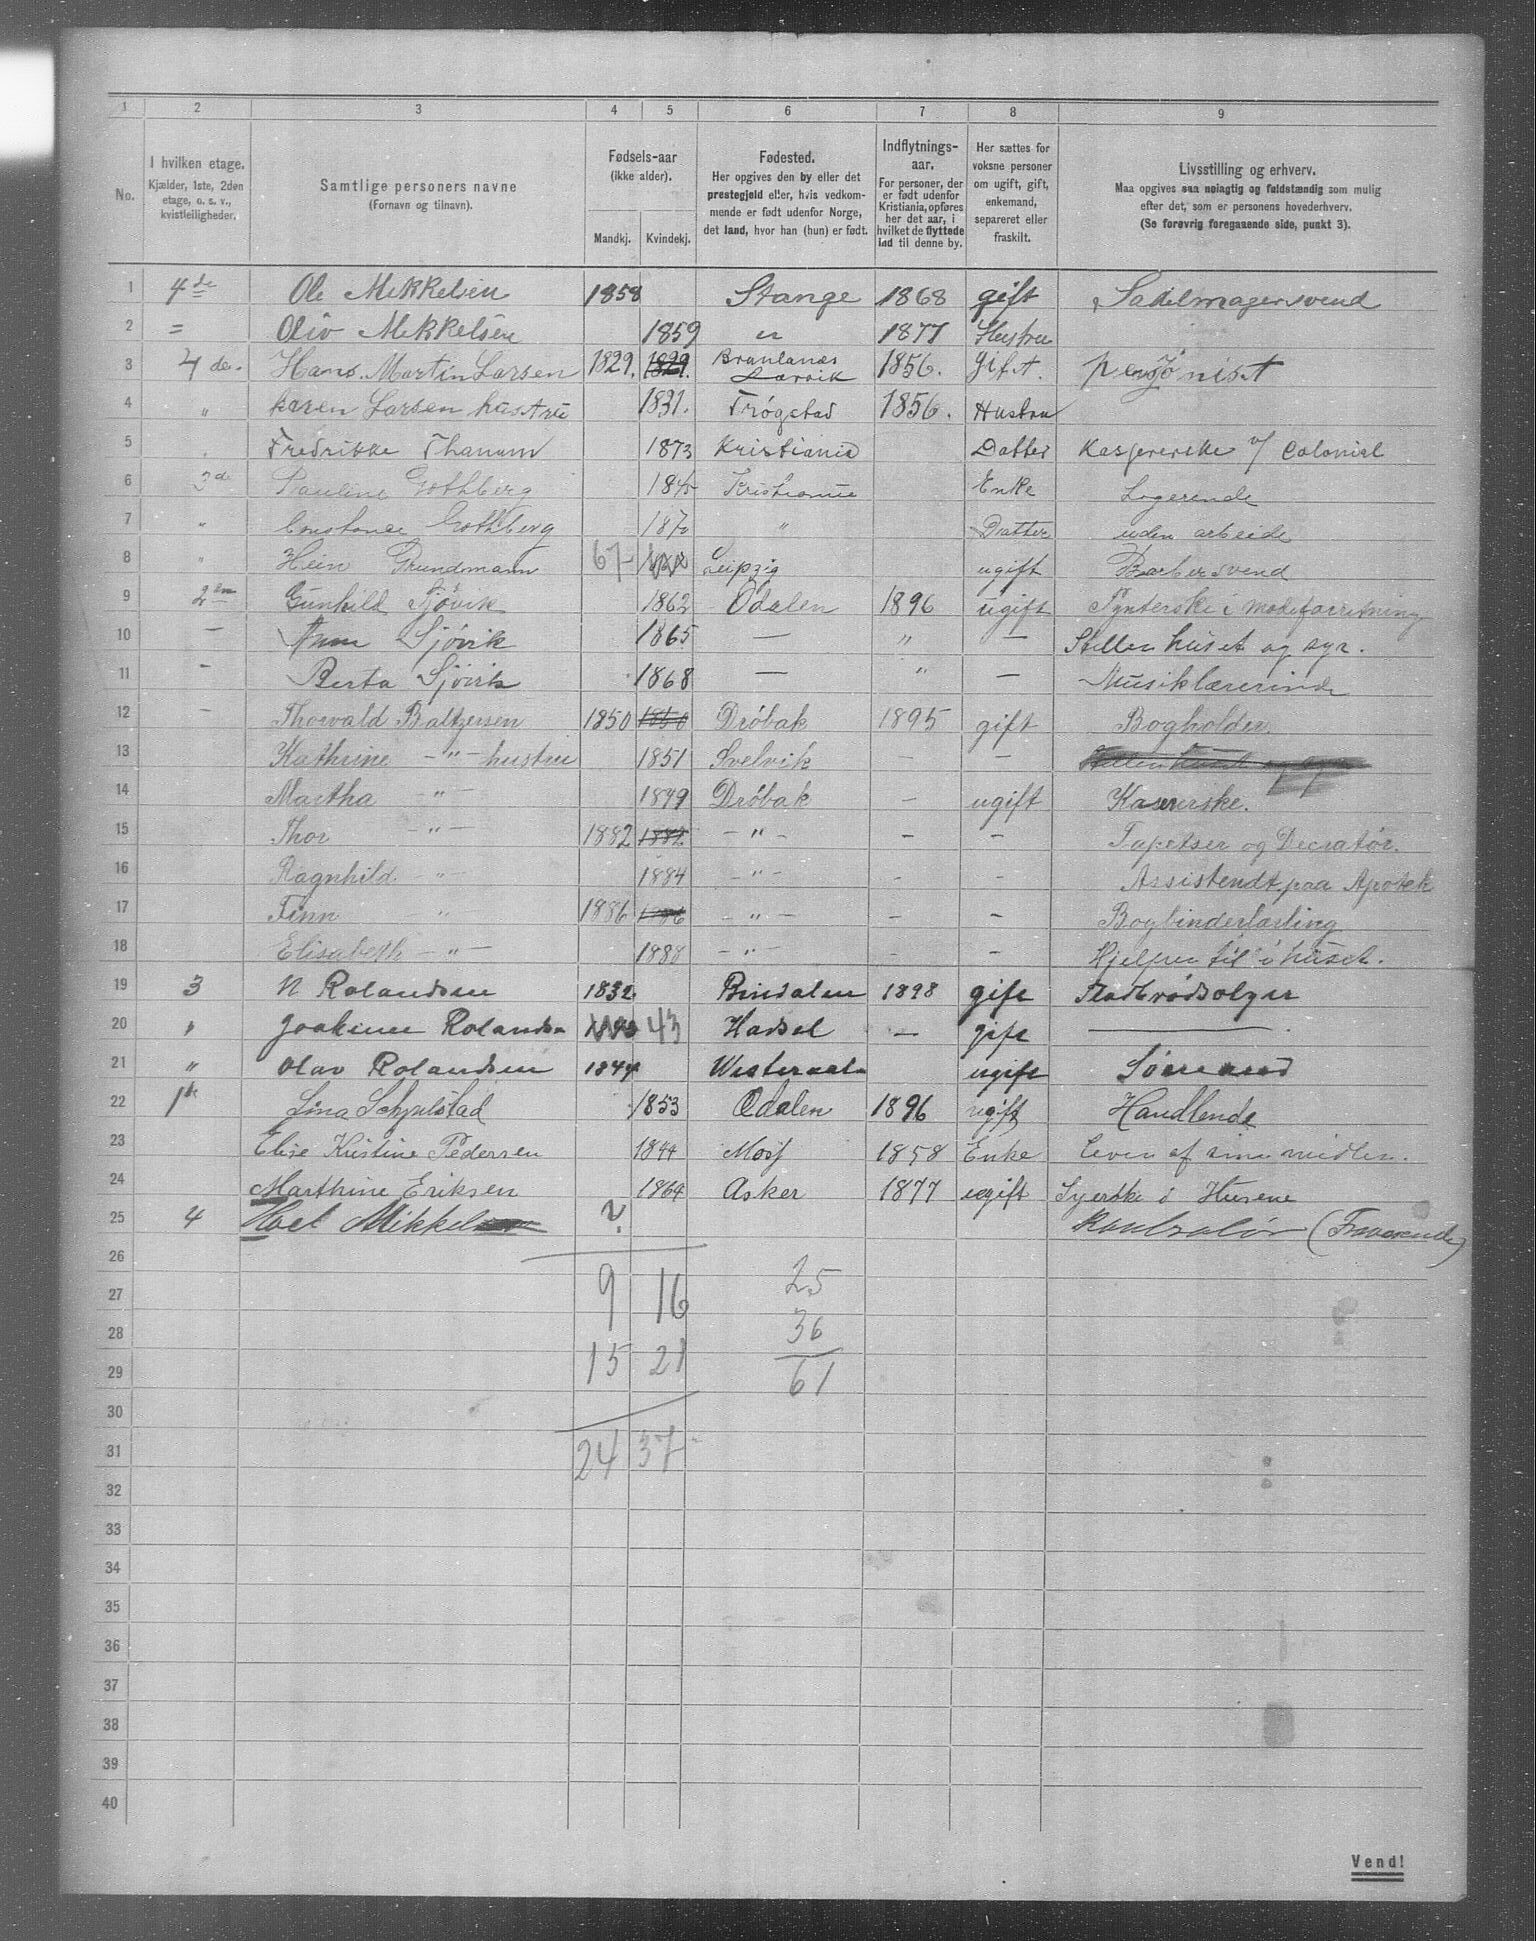 1 2 3 4 5 6 7 8 9
No.
I hvilken etage. Kjælder, 1ste, 2den etage, o. s. v., kvistleiligheder.
Samtlige personers navne (Fornavn og tilnavn).
Fødsels-aar (ikke alder). Mandkj. Kvindekj.
Fødested. Her opgives den by eller det prestegjeld eller, hvis vedkommende er født udenfor Norge, det land, hvor han (hun) er født.
Indflytnings-aar. For personer, der er født udenfor Kristiania, opføres her det aar, i hvilket de flyttede ind til denne by.
Her sættes for voksne personer om ugift, gift, enkemand, separeret eller fraskilt.
Livsstilling og erhverv. Maa opgives saa nøiagtig og fuldstændig som mulig efter det, som er personens hovederhverv. (Se forøvrig foregaaende side, punkt 3).
1 4de Ole Mekkelsen 1858 Stange 1868 gift Sadelmagersvend
2 = Oliv Mekkelsen 1859 " 1877 Hustru
3 4de. Hans. Martin Larsen 1829. 1829. Brunlanæs Larvik 1856. Gift. pensjonist
4 " karen Larsen hustru 1831. Trøgstad 1856. Hustru
5 Fredrikke Thanum 1873 Kristiania Datter Kasjererske v/ Colonial
6 3de Pauline Gothberg 1845 Kristiania Enke Logerende
7 " Constance Gothberg 1870 " Datter uden arbeide
8 " Hein Grundmann 67 Leipzig ugift Barbersvend
9 2den Gunhild Sjøvik 1862 Odalen 1896 ugift Pynterske i modeforretning
10 — Anne Sjøvik 1865 — " — Steller huset og syr.
11 — Berta Sjøvik 1868 — " — Musiklærerinde
12 — Thorvald Baltzersen 1850 1850 Drøbak 1895 gift Bogholder.
13 Kathrine —"— hustru 1851 Svelvik — — Steller huset og syr
14 Martha —"— 1879 Drøbak — ugift Kasererske.
15 Thor —"— 1882 1882 —"— — — Tapetser og Decratør.
16 Ragnhild —"— 1884 —"— — — Assistendt paa Apotek
17 Finn " 1886 1886 —"— — — Bogbinderlærling
18 Elisabeth —"— 1888 —"— — — Hjelper til i huset.
19 3 N Rolandsen 1832 Bindalen 1898 gift Fladbrødsælger
20 " Joakime Rolands 43 Hadsel — gift —
21 " Olav Rolandsen 1874 ugift Sømand
22 1ste Lina Schjulstad 1853 Odalen 1896 ugift Handlende
23 Elise Kristine Pedersen 1844 Moss 1858 Enke Lever af sine midler.
24 Marthine Eriksen 1864 Asker 1877 ugift Syerske i Husene
25 4 Mikkelsen ? Kontrolør (Fraværende)
26
27 9 16 25
28 36
29 15 21 61
30
31 24 37
32
33
34
35
36
37
38
39
40
Vend!